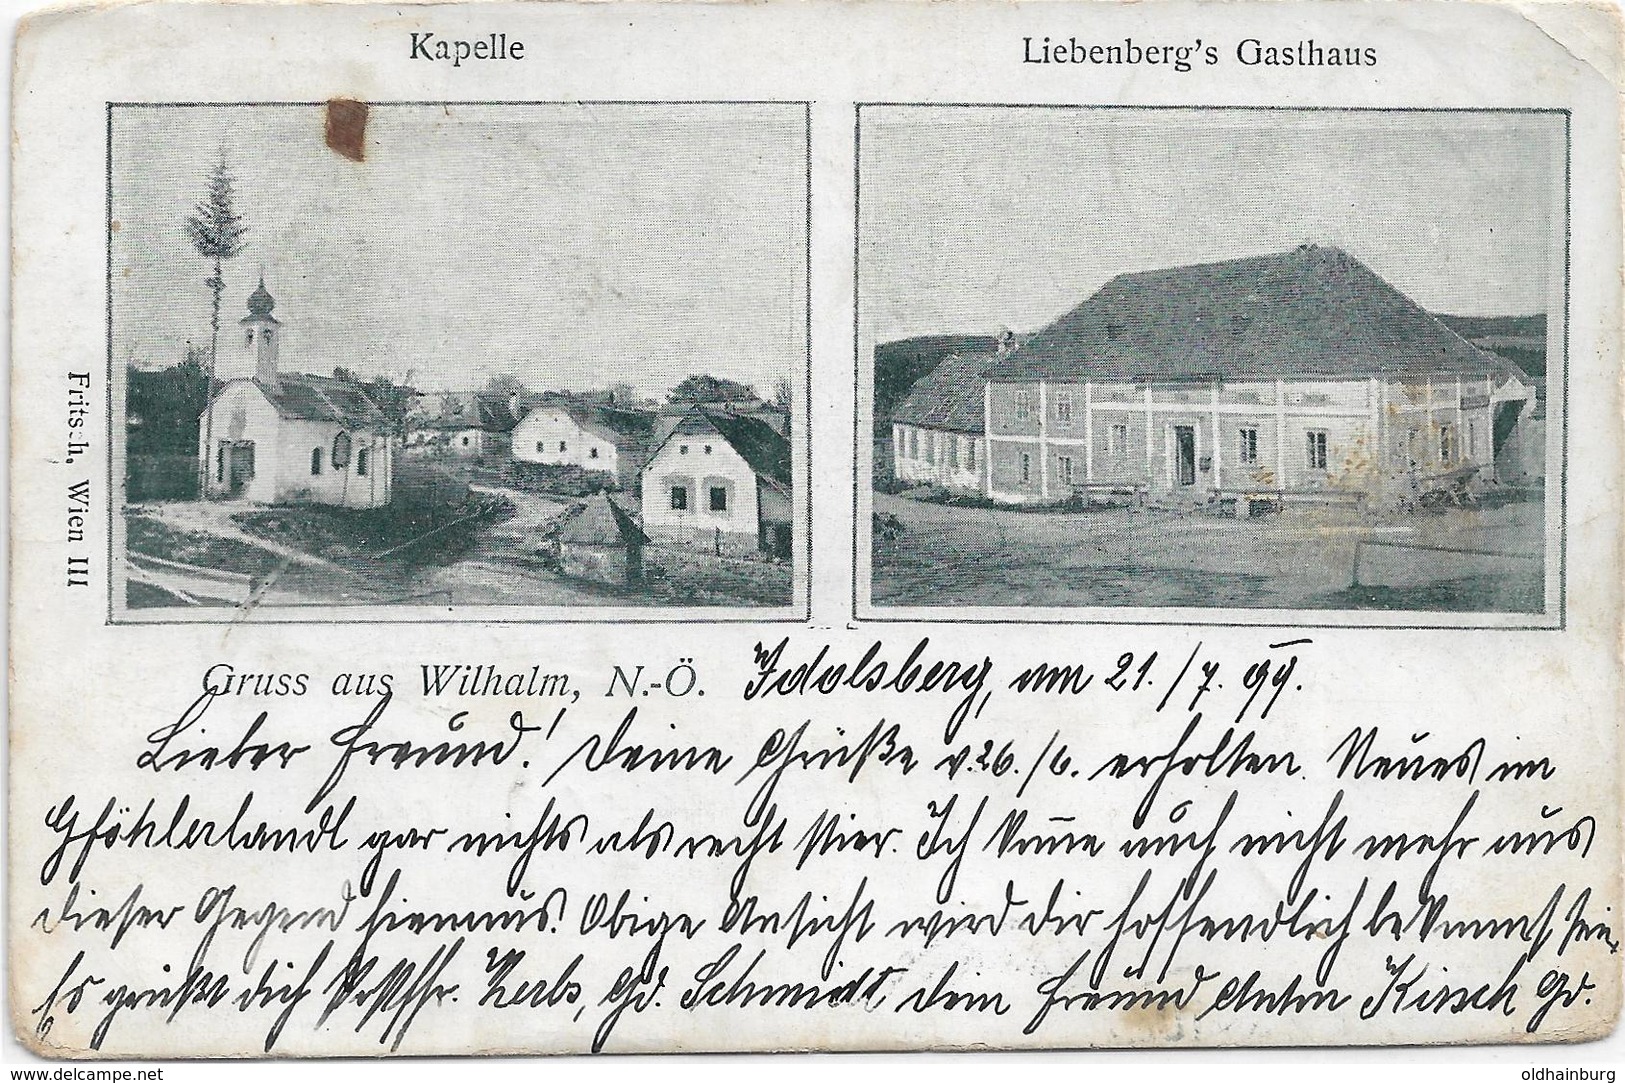 Kapelle
Liebenberg's Gasthaus
Fritsch, Wien III
Gruss aus Wilhalm, N.-Ö. Idolsberg, am 21./7. 99.
Lieber Freund! Deine Grüße v. 26./6. erhalten. Neues im
Gföhlerlandl gar nichts als recht stier. Ich kom̅e auch nicht mehr aus
dieser Gegend hienaus. Obige Ansicht wird dir hoffendlich bekannt sein.
Es grüßt dich Postfhr. Zerbs, Gd. Schmidt, dein Freund Anton Kirsch Gd.
www.delcampe.net
oldhainburg